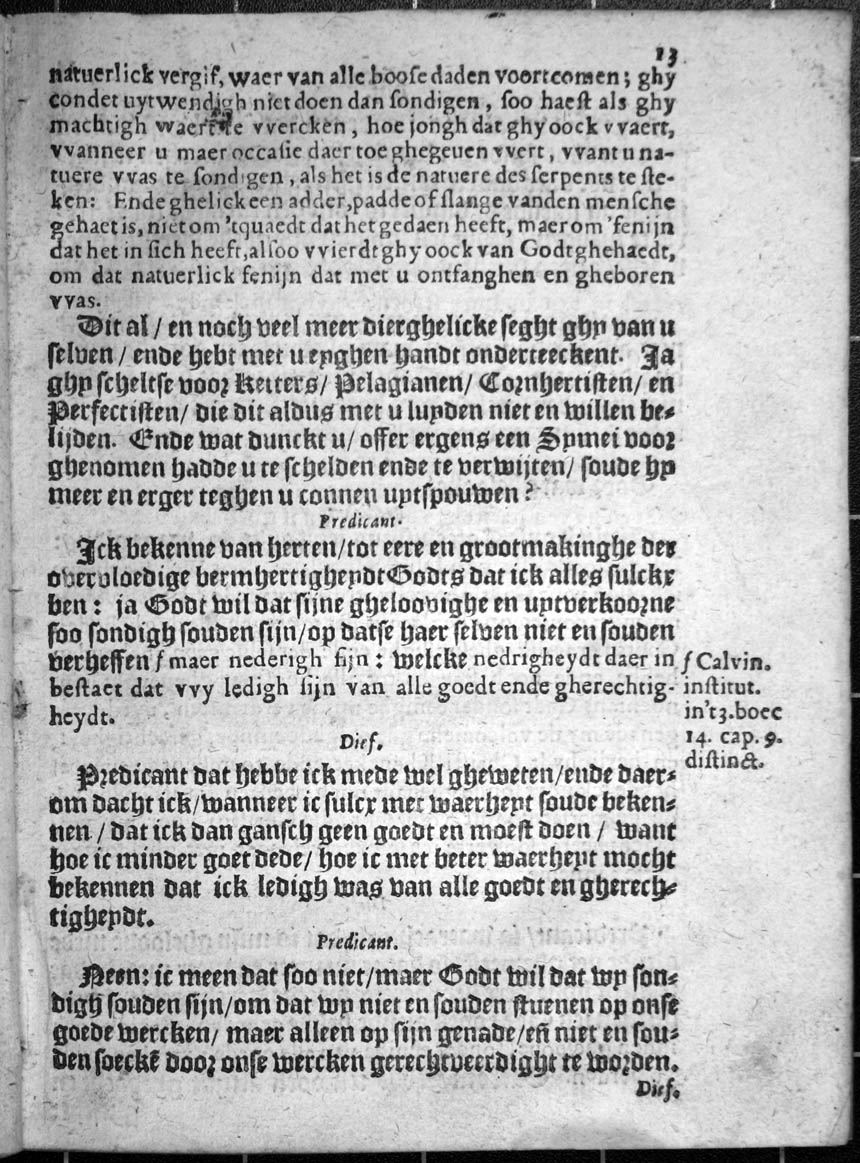 13
natuerlick vergif, waer van alle boose daden voortcomen; ghy
condet uytwendigh niet doen dan sondigen, soo haest als ghy
machtigh waert te vvercken, hoe jongh dat ghy oock vvaert,
vvanneer u maer occasie daer toe ghegeuen vvert, vvant u na-
tuere vvas te sondigen, als het is de natuere des serpents te ste-
ken: Ende ghelick een adder, padde of slange vanden mensche
gehaet is, niet om 'tquaedt dat het gedaen heeft, maer om 'fenijn
dat het in sich heeft, alsoo vvierdt ghy oock van Godt ghehaedt,
om dat natuerlick fenijn dat met u ontfanghen en gheboren
vvas.
Dit al / en noch veel meer dierghelicke seght ghy van u
selven / ende hebt met u eyghen handt onderteeckent. Ja
ghy scheltse voor Ketters / Pelagianen / Cornhertisten / en
Perfectisten / die dit aldus met u luyden niet en willen be-
lijden. Ende wat dunckt u / offer ergens een Symei voor
ghenomen hadde u te schelden ende te verwijten / soude hy
meer en erger teghen u connen uytspouwen?
Predicant.
Ick bekenne van herten / tot eere en grootmakinghe der
overvloedige bermhertigheydt Godts dat ick alles sulckx
ben: ja Godt wil dat sijne gheloovighe en uytverkoorne
soo sondigh souden sijn / op datse haer selven niet en souden
verheffen f maer nederigh sijn: welcke nedrigheydt daer in
bestaet dat vvy ledigh sijn van alle goedt ende gherechtig-
heydt.
f Calvin.
institut.
in't 3. boec
14. cap. 9.
distinct.
Dief.
Predicant dat hebbe ick mede wel gheweten / ende daer-
om dacht ick / wanneer ic sulcx met waerheyt soude beken-
nen / dat ick dan gansch geen goedt en moest doen / want
hoe ic minder goet dede / hoe ic met beter waerheyt mocht
bekennen dat ick ledigh was van alle goedt en gherech-
tigheydt.
Predicant.
Neen: ic meen dat soo niet / maer Godt wil dat wy son-
digh souden sijn / om dat wy niet en souden stuenen op onse
goede wercken / maer alleen op sijn genade / eñ niet en sou-
den soeckē door onse wercken gerechtveerdight te worden.
Dief.